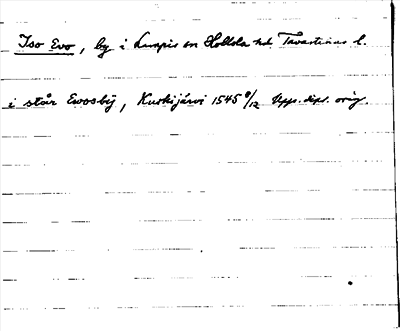 Iso Evo, by i Lampis sn Hollola hd Tavastehus l.
i står Evosbij, Kurkijärvi 1545 8/12 Upps. dipl. orig.